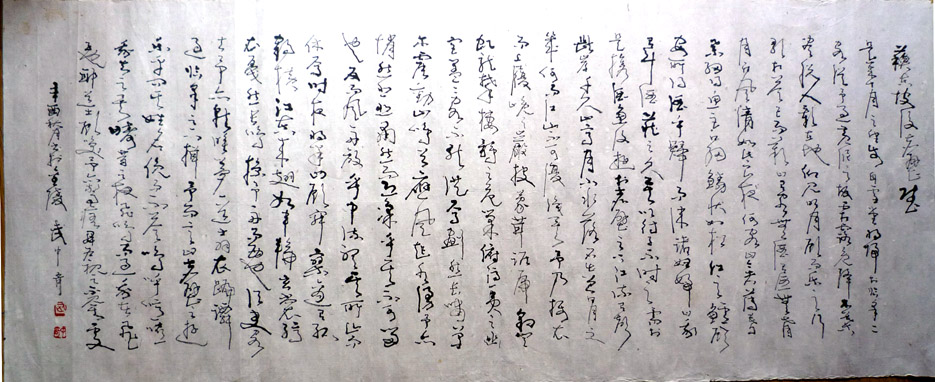 蘇東坡後赤壁賦
是歲十月之望步自雪堂將歸于臨皋二
客從予過黃泥之坂霜露既降木葉
盡脫人影在地仰見明月顧而樂之行
歌相答已而歎曰有客無酒有酒無肴
月白風清如此良夜何客曰今者薄暮
舉網得魚巨口細鱗狀如松江之鱸顧
安所得酒乎歸而謀諸婦婦曰我
有斗酒藏之久矣以待子不時之需於
是攜酒與魚復遊於赤壁之下江流有聲
斷岸千尺山高月小水落石出曾日月之
幾何而江山不可復識矣予乃攝衣
而上履巉巖披蒙茸踞虎豹登
虬龍攀棲鶻之危巢俯馮夷之幽
宮蓋二客不能從焉劃然長嘯草
木震動山鳴谷應風起水涌予亦
悄然而悲肅然而恐凜乎其不可留
也反而登舟放乎中流聽其所止而
休焉時夜將半四顧寂寥適有孤
鶴橫江東來翅如車輪玄裳縞
衣戛然長鳴掠予舟而西也須臾客
去予亦就睡夢一道士羽衣蹁躚
過臨皋之下揖予而言曰赤壁之遊
樂乎問其姓名俛而不答嗚呼噫嘻
我知之矣疇昔之夜飛鳴而過我者非
子也邪道士顧笑予亦驚寤開戶視之不見其處
辛酉